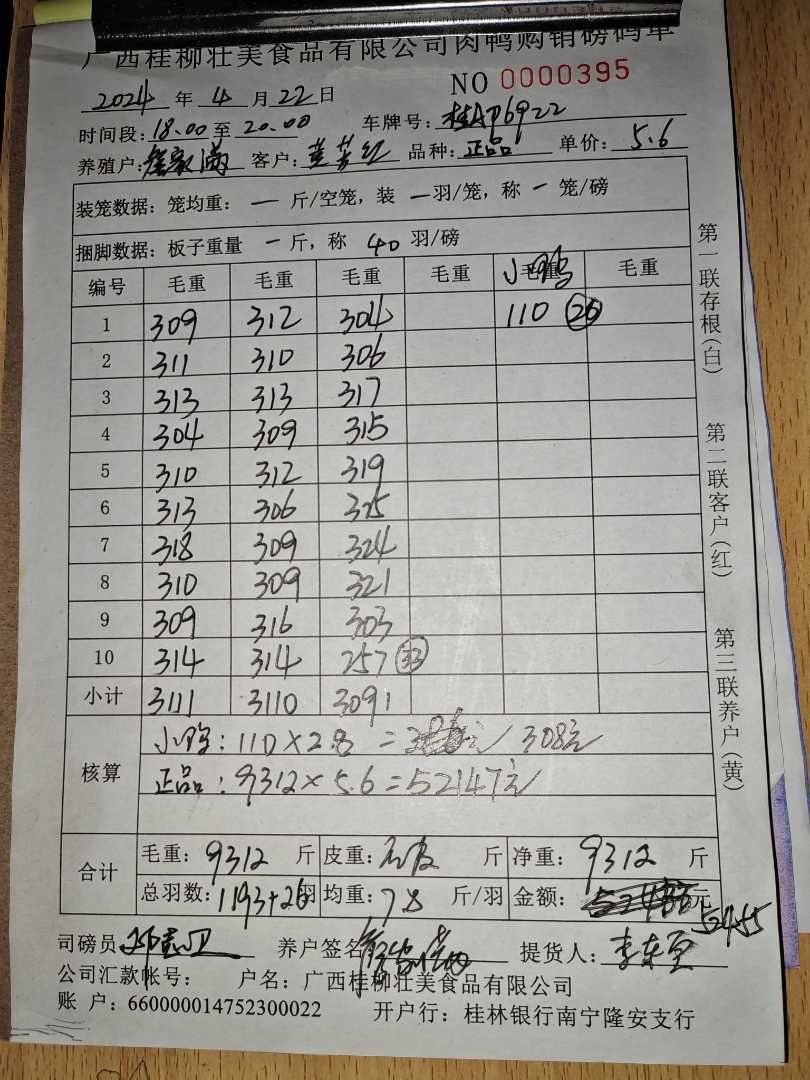 广西桂柳壮美食品有限公司肉鸭购销磅码单
NO 0000395
2024 年 4 月 22 日
时间段: 18.00 至 20.00 车牌号: 桂AP6922
养殖户: 家满 客户: 黄芳红 品种: 正品 单价: 5.6
装笼数据: 笼均重: 一 斤/空笼, 装 一 羽/笼, 称 一 笼/磅
捆脚数据: 板子重量 一 斤, 称 40 羽/磅
编号 毛重 毛重 毛重 毛重 毛重 小鸭 毛重
1 309 312 304 110 26
2 311 310 306
3 313 313 317
4 304 309 315
5 310 312 319
6 313 306 325
7 318 309 324
8 310 309 321
9 309 316 303
10 314 314 257 33
小计 3111 3110 3091
核算 小鸭: 110×2.8= 308元
正品: 9312×5.6=52147元
合计 毛重: 9312 斤 皮重: 斤 净重: 9312 斤
总羽数: 1193+26 羽 均重: 7.8 斤/羽 金额: 元
52455
司磅员 养户签名 提货人:
公司汇款帐号: 户名: 广西桂柳壮美食品有限公司
账 户: 660000014752300022 开户行: 桂林银行南宁隆安支行
第一联存根(白)
第二联客户(红)
第三联养户(黄)